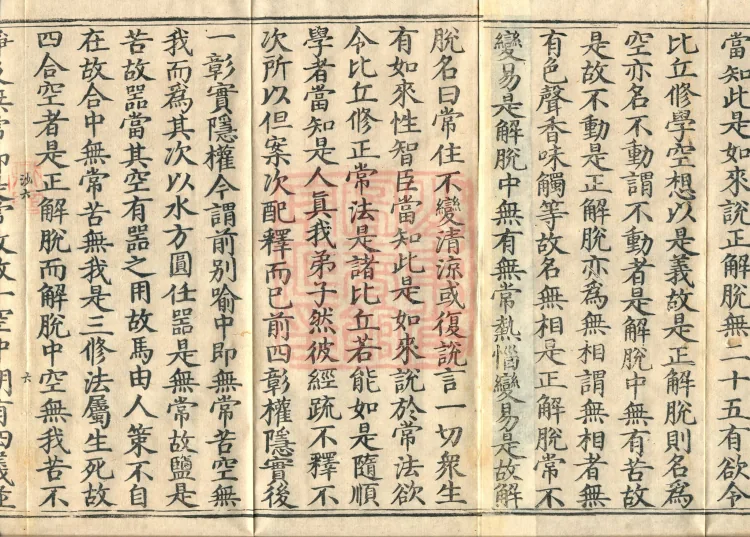 當知此是如來說正解脫無二十五有欲令
比丘修學空想以是義故是正解脫則名爲
空亦名不動謂不動者是解脫中無有苦故
是故不動是正解脫亦爲無相謂無相者無
有色聲香味觸等故名無相是正解脫常不
變易是解脫中無有無常熱惱變易是故解
脫名曰常住不變清涼或復說言一切衆生
有如來性智臣當知此是如來說於常法欲
令比丘修正常法是諸比丘若能如是隨順
學者當知是人眞我弟子然彼經疏不釋不
次所以但案次配釋而已前四彰權隱實後
一彰實隱權今謂前別喻中即無常苦空無
我而爲其次以水方圓任器是無常故鹽是
苦故器當其空有器之用故馬由人策不自
在故合中無常苦無我是三修法屬生死故
四合空者是正解脫而解脫中空無我苦不
六